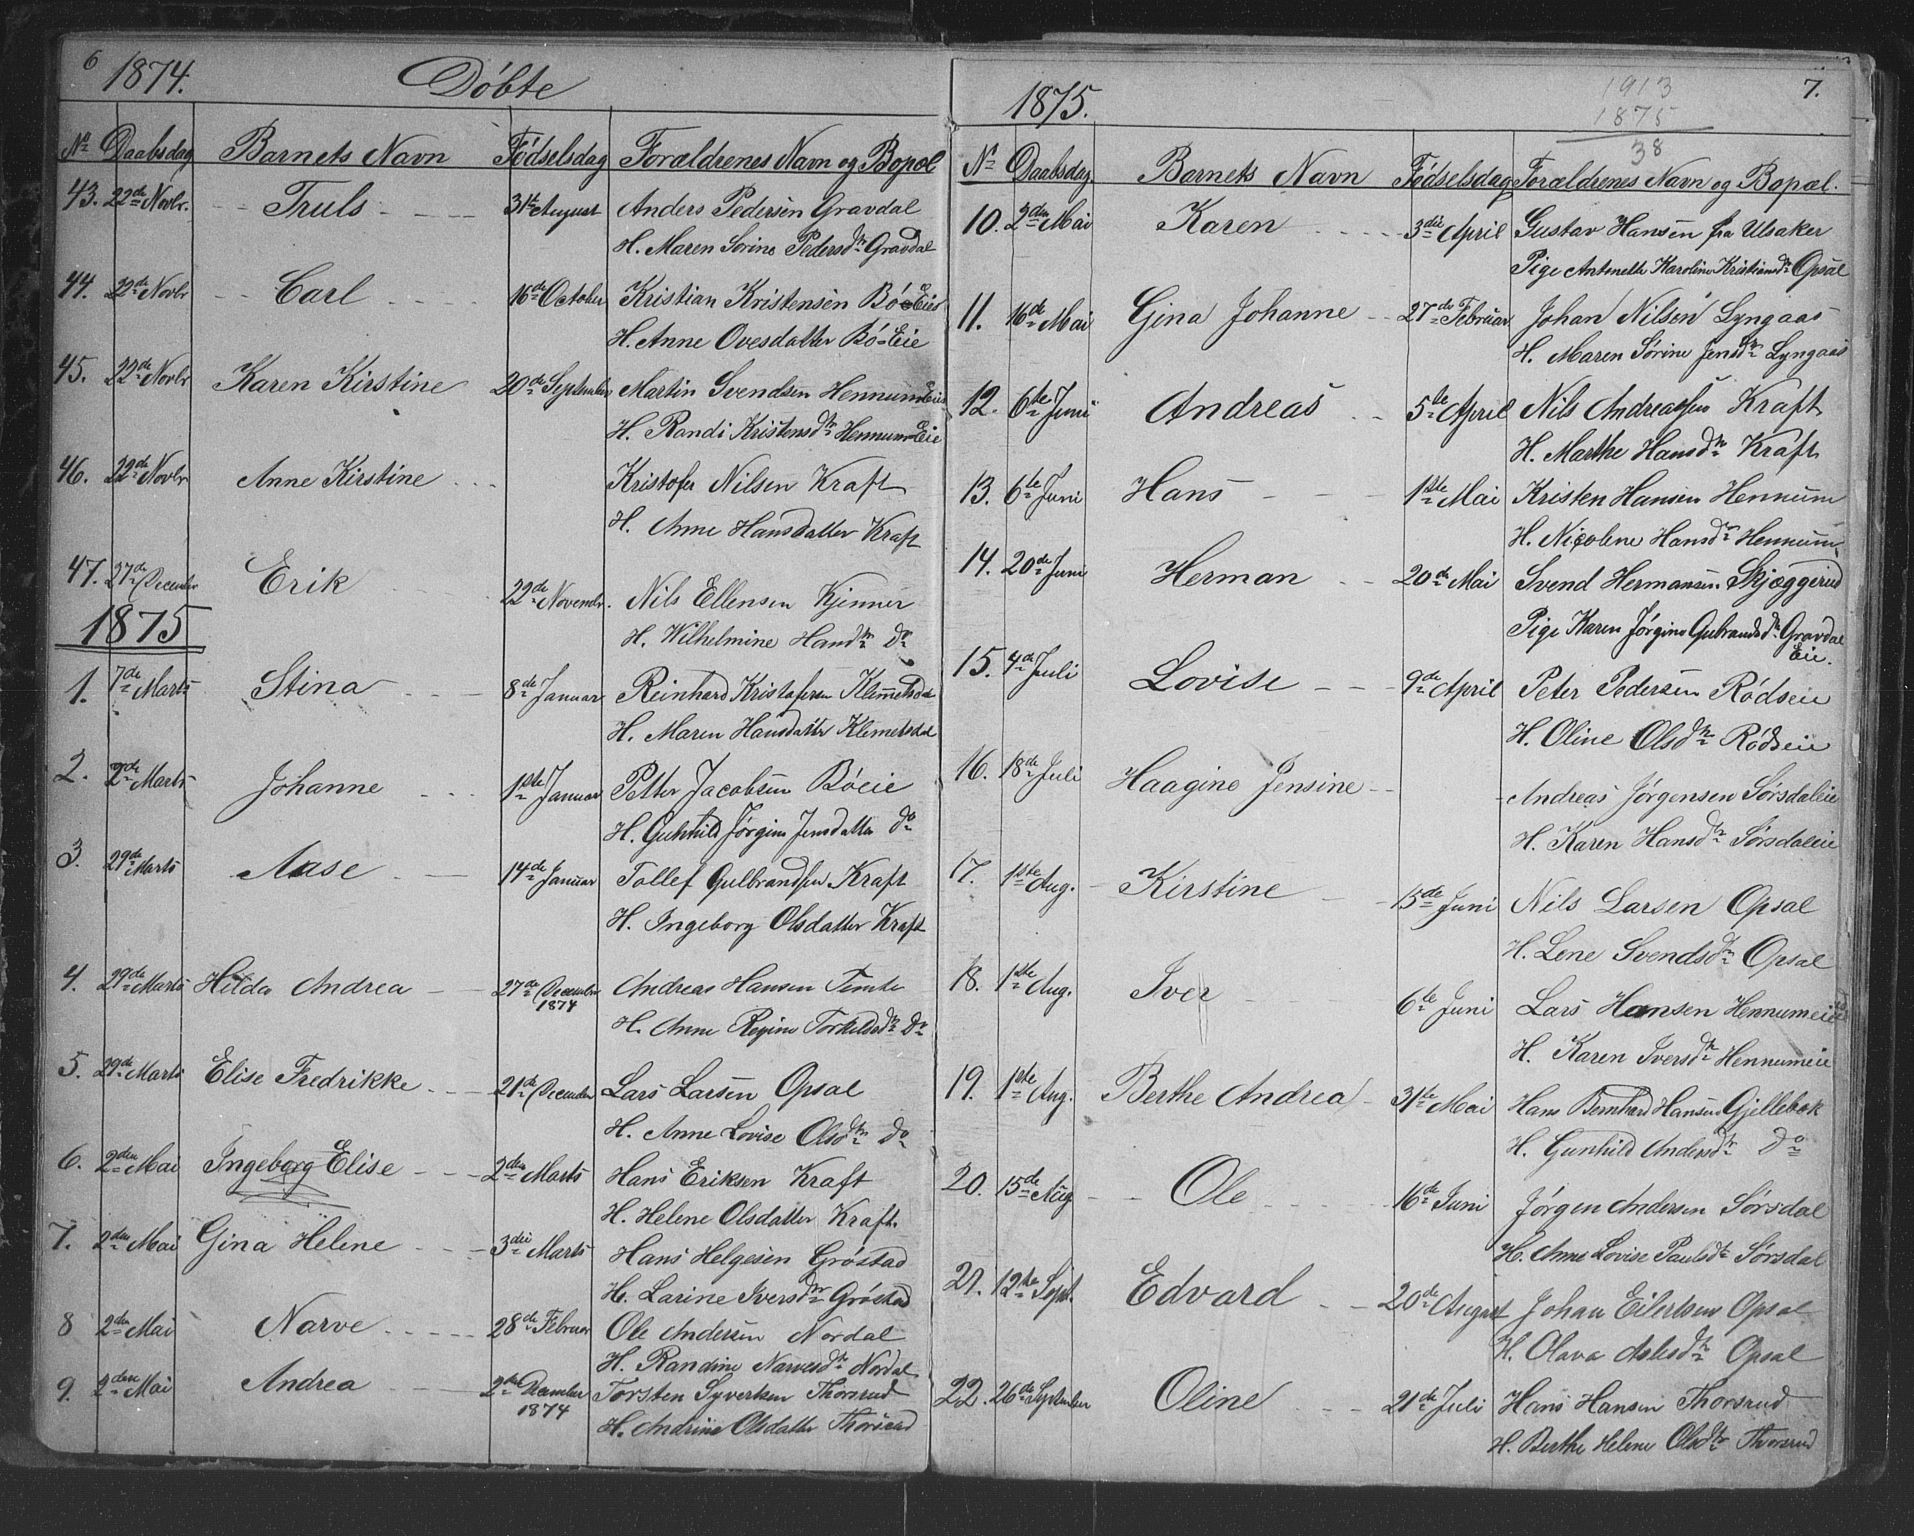 6 1874. Döbte
No Daabsdag Barnets Navn Födselsdag Forældrenes Navn og Bopæl
43. 22de Novbr. Truls 31te August Anders Pedersen Gravdal
H. Maren Sorine Pedersdtr Gravdal
44. 22de Novbr Carl 16de October Kristian Kristensen Bö-Eie
H. Anne Ovesdatter Bö-Eie
45. 22de Novbr Karen Kirstine 20de September Martin Svendsen Hennum-Eie
H. Randi Kristensdtr Hennum-Eie
46. 22de Novbr Anne Kirstine Kristofer Nilsen Kraft
H. Anne Hansdatter Kraft
47. 27de December Erik 22de Novembr. Nils Ellensen Kjenner
H. Wilhelmine Hansdtr Do
1875
1. 7de Marts Stina 8de Januar Reinhard Kristofersen Klemetsdal
H. Maren Hansdatter Klemetsdal
2. Marts Johanne 1ste Januar Petter Jacobsen Böeie
H. Gunhild Jørgine Jensdatter Do
3. 29de Marts Aase 14de Januar Tollef Gulbrandsen Kraft
H. Ingeborg Olsdatter Kraft
4. 29de Marts Hilda Andrea 27de December 1874 Andreas Hansen Temte
H. Anne Regine Torkildsdtr Do
5. 29de Marts Elise Fredrikke 21de December Lars Larsen Opsal
H. Anne Lovise Olsdtr Do
6. 2den Mai Ingeborg Elise 2den Marts Hans Eriksen Kraft
H. Helene Olsdatter Kraft.
7. 2den Mai Gina Helene 3die Marts Hans Helgesen Gröstad
H. Larine Iversdtr Gröstad
8 2den Mai Narve 28de Februar Ole Andersen Nordal
H. Randine Narvesdtr Nordal
9. 2den Mai Andrea 2den December 1874 Torsten Syvertsen Thorsrud
H. Andrine Olsdatter Thorsrud
1875. 1913 7.
1875
38
No Daabsdag Barnets Navn Födselsdag Forældrenes Navn og Bopæl.
10. 2den Mai Karen 3die April Gustav Hansen fra Ulsaker
Pige Antonette Karoline Kristiansdtr Opsal
11. 16de Mai Gina Johanne 27de Februar Johan Nilsen Lyngaas
H. Maren Sörine Jensdtr Lyngaas
12. 6te Juni Andreas 5te April Nils Andreassen Kraft
H. Marthe Hansdtr Kraft
13. 6te Juni Hans 1ste Mai Kristen Hansen Hennum
H. Nicoline Hansdtr Hennum
14. 20de Juni Herman 20de Mai Svend Hermansen Skjæggerud
Pige Karen Jørgine Gulbrandsdtr Gravdal
Eie.
15. 4de Juli Lovise 9de April Peter Pedersen Rödseie
H. Oline Olsdtr Rödseie
16. 18de Juli Haagine Jensine Andreas Jörgensen Sörsdaleie
H. Karen Hansdtr Sörsdaleie
17. 1ste Aug. Kirstine 15de Juni Nils Larsen Opsal
H. Lene Svendsdtr Opsal
18. 1ste Aug. Iver 6te Juni Lars Hansen Hennumeie
H. Karen Iversdtr Hennumeie
19. 1ste Aug. Berthe Andrea 31te Mai Hans Bernhard Hansen Gjellebæk
H. Gunhild Andersdtr Do
20. 15de Aug Ole 16de Juni Jörgen Andersen Sörsdal
H. Anne Lovise Paulsdtr Sörsdal
21. 12te Sept. Edvard 20de August Johan Eilertsen Opsal
H. Olava Aslesdtr Opsal
22. 26de September Oline 21de Juli Hans Hansen Thorsrud
H. Berthe Helene Olsdtr Thorsrud